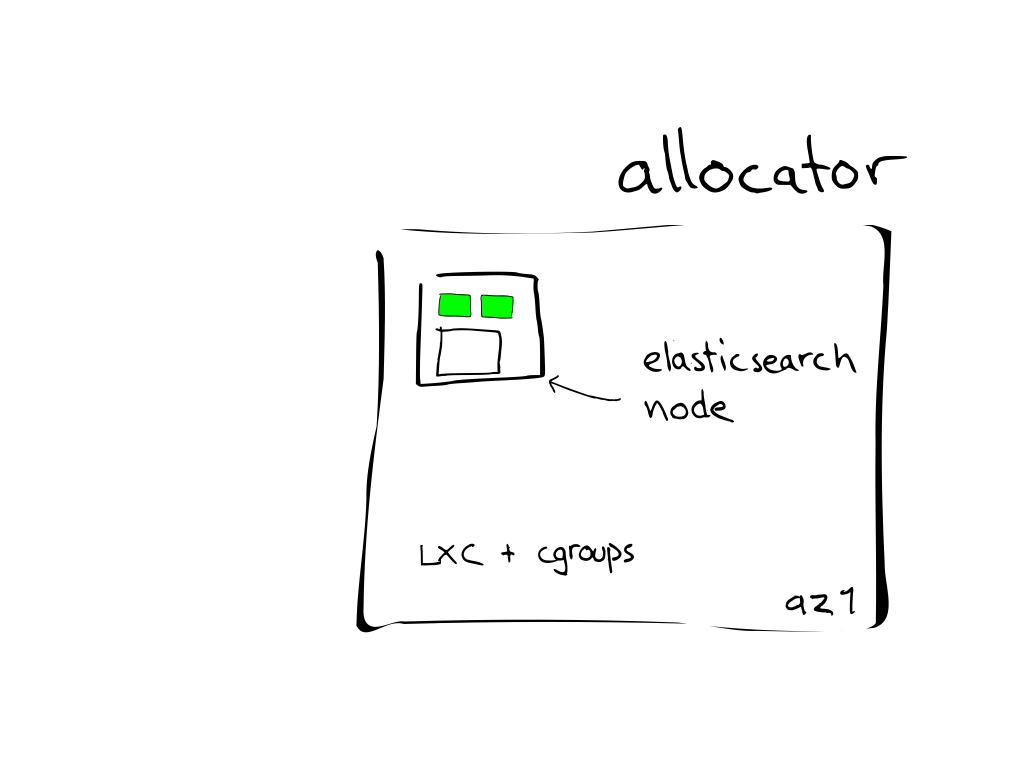 allocator
elasticsearch
node
LXC + cgroups
az1